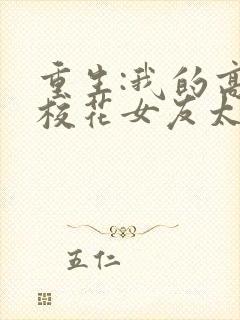 重生:我的高
校花女友太
五仁